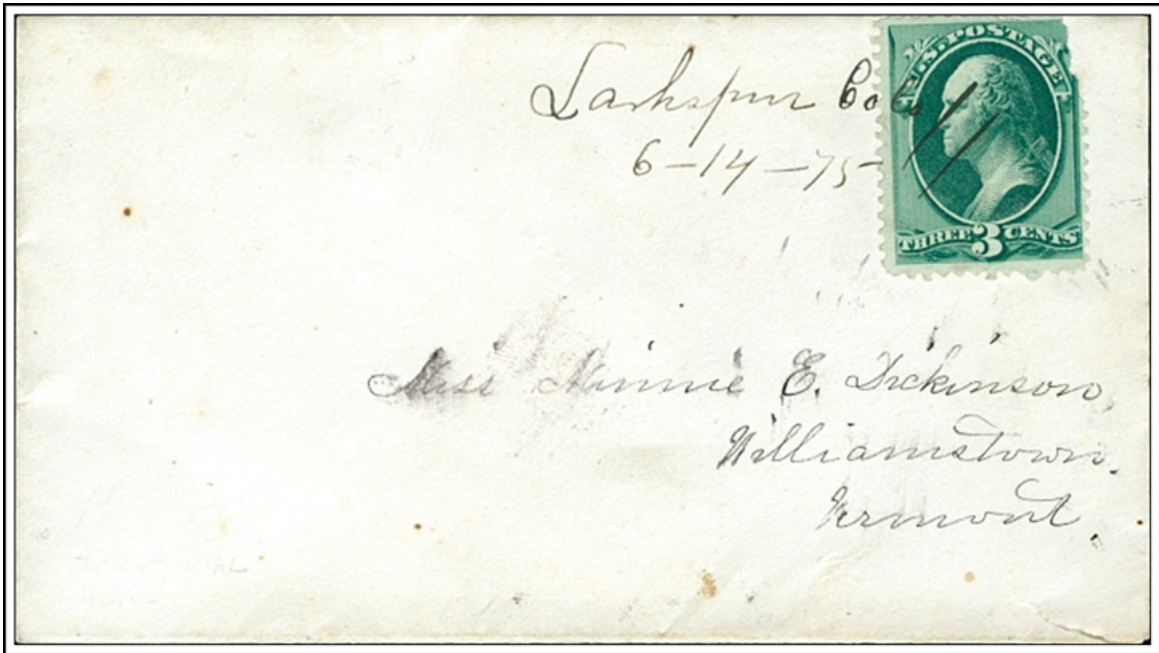 Larkspur Colo
6-14-75-
U.S. POSTAGE
THREE 3 CENTS
Miss Minnie E. Dickinson,
Williamstown.
Vermont.